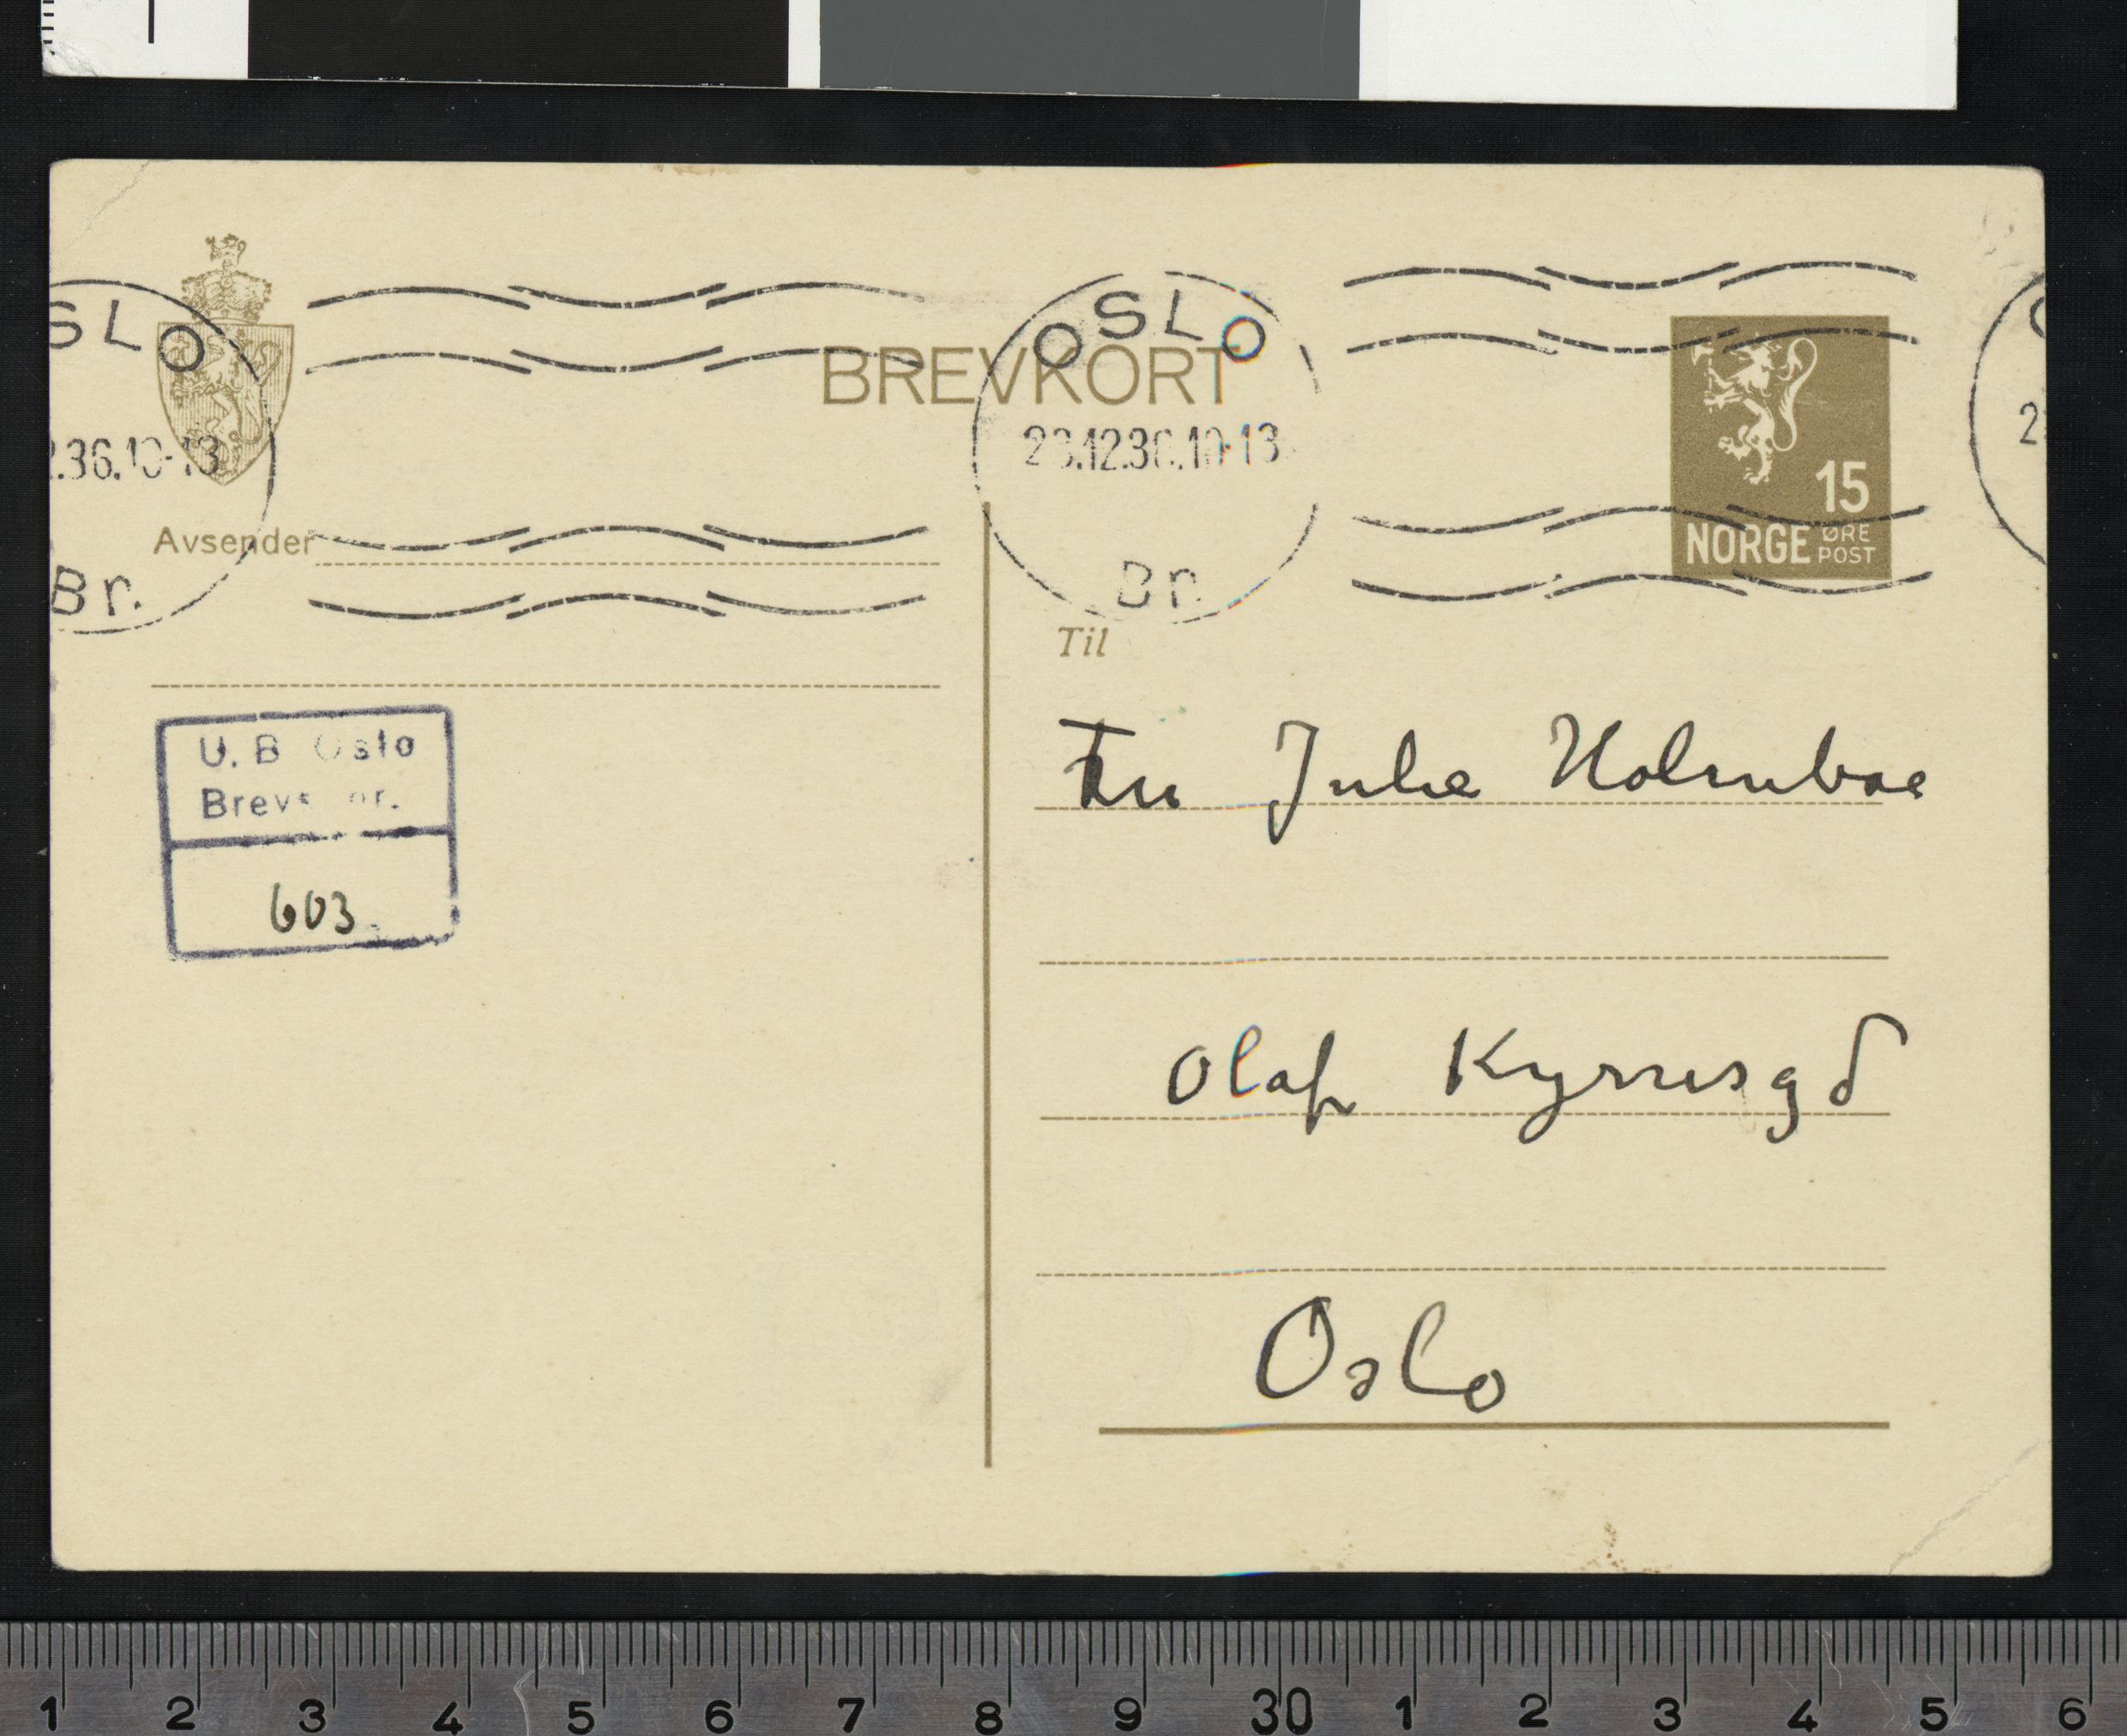 OSLO
BREVKORT
OSLO
.36.10-13
23.12.36.10-13
15
NORGE ØRE POST
Avsender
Br.
Br.
Til
U. B Oslo
Brevs. nr.
603
Fru Julie Holmboe
Olaf Kyrresgd
Oslo
1 2 3 4 5 6 7 8 9 30 1 2 3 4 5 6